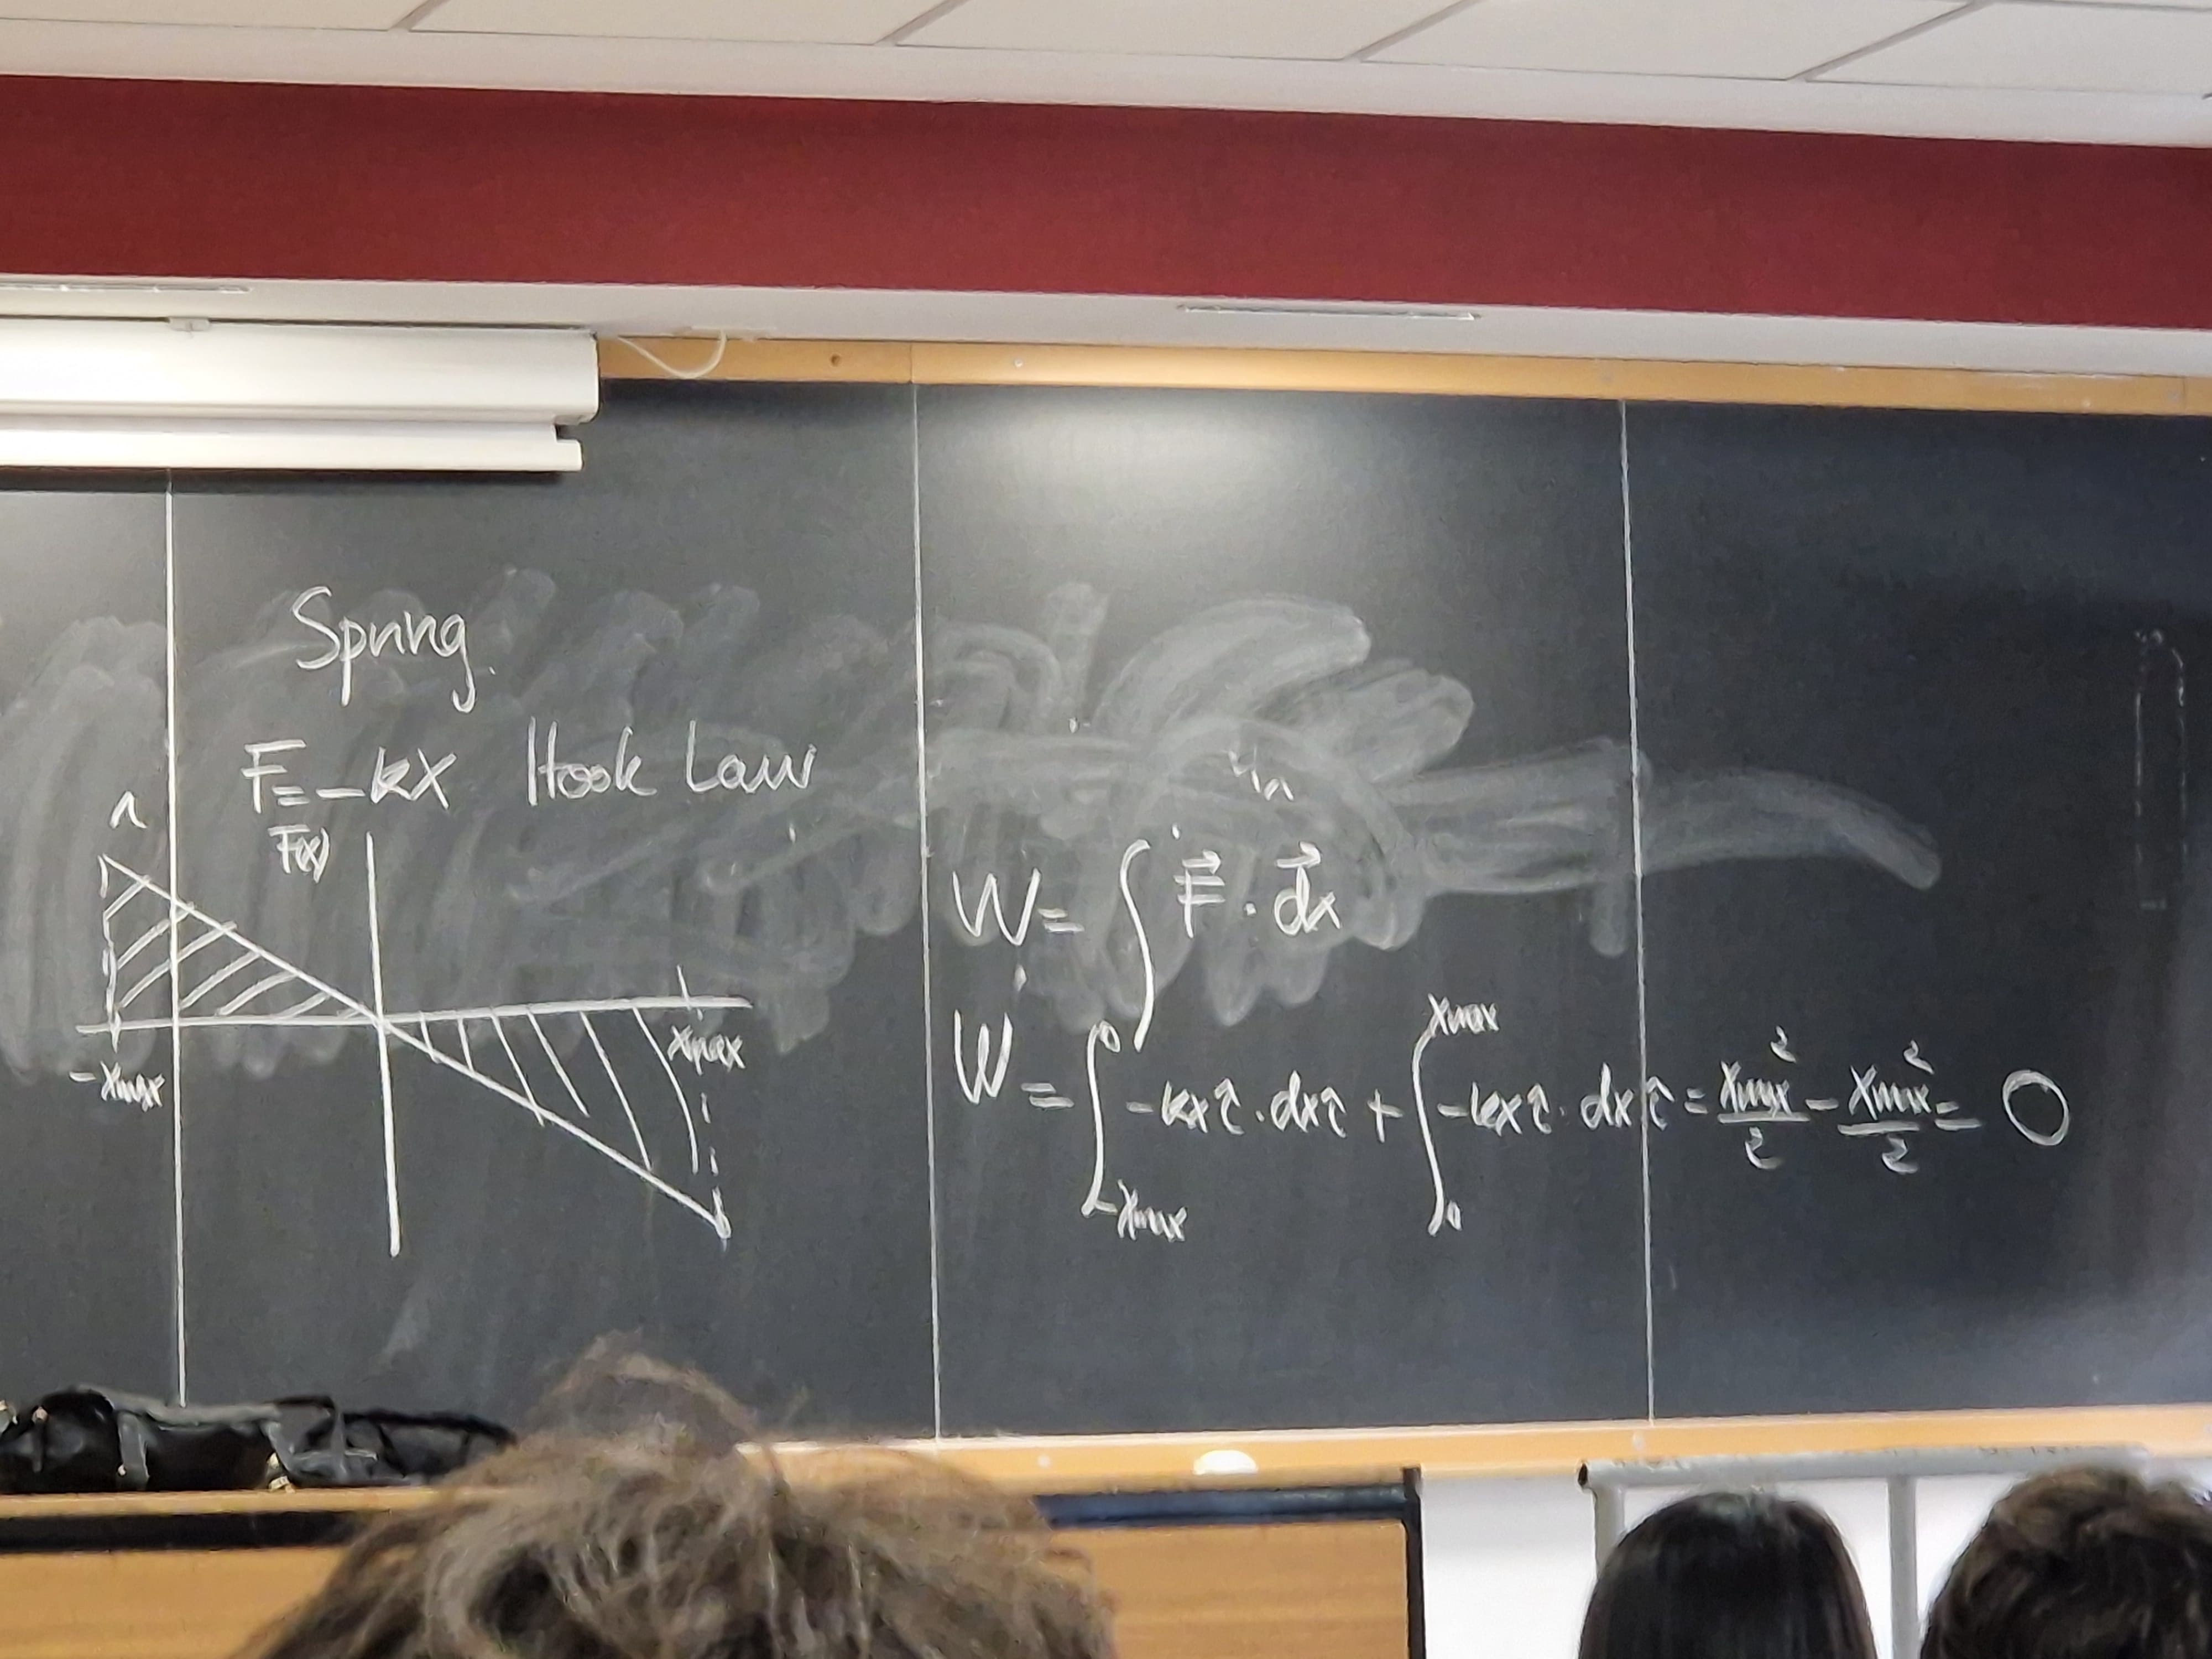 Spring.
F = -kx Hook Law
F(x)
-xmax
xmax
W = ∫ F⃗ · d⃗x
W = ∫_{-xmax}^{0} -kx î · dx î + ∫_{0}^{xmax} -kx î · dx î = xmax²/2 - xmax²/2 = 0